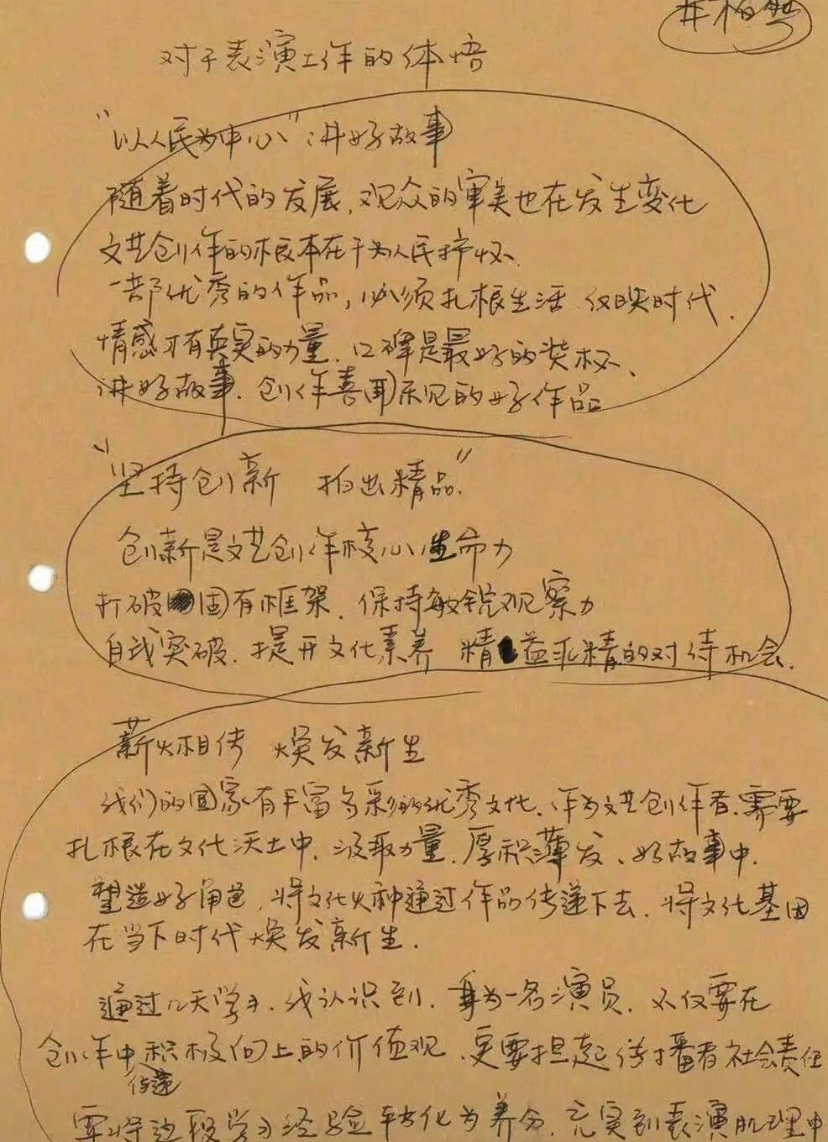 井柏然
对于表演工作的体悟
"以人民为中心"讲好故事
随着时代的发展,观众的审美也在发生变化
文艺创作的根本在于为人民抒怀、
一部优秀的作品,必须扎根生活 反映时代.
情感才有真实的力量.口碑是最好的奖杯、
讲好故事.创作喜闻乐见的好作品
"坚持创新 拍出精品"
创新是文艺创作核心生命力
打破固有框架.保持敏锐观察力
自我突破.提升文化素养 精益求精的对待机会.
薪火相传 焕发新生
我们的国家有丰富多彩的优秀文化.作为文艺创作者.需要
扎根在文化沃土中.汲取力量.厚积薄发、好故事中.
塑造好角色.将文化火种通过作品传递下去.将文化基因
在当下时代焕发新生.
通过几天学习.我认识到.身为一名演员.不仅要在
创作中传递积极向上的价值观.更要担起传播者社会责任
要将这段学习经验转化为养分.充实到表演肌理中